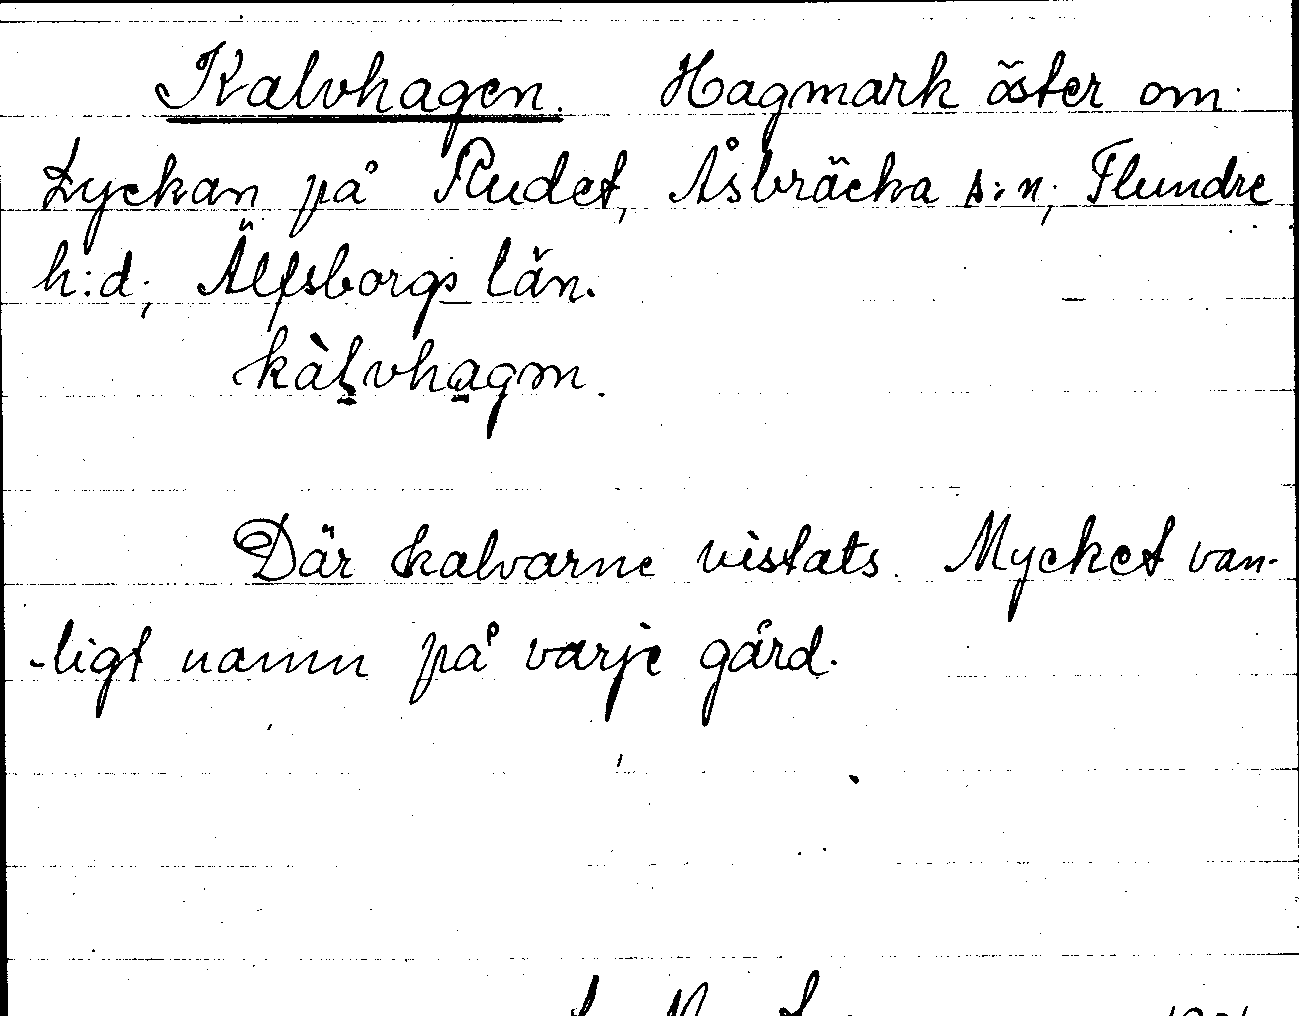 Kalvhagen. Hagmark öster om
Lyckan på Rudet, Åsbräcka s:n; Flundre
h:d; Älfsborgs län.
kàlvhagm.
Där kalvarne vistats. Mycket van-
-ligt namn på varje gård.